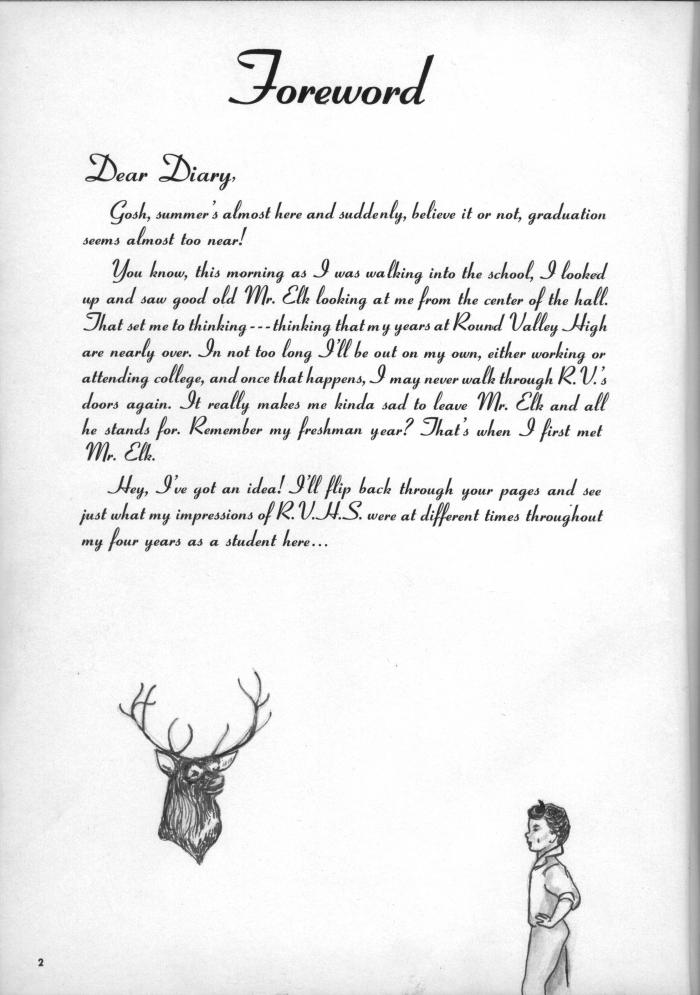 Foreword
Dear Diary,
Gosh, summer's almost here and suddenly, believe it or not, graduation
seems almost too near!
You know, this morning as I was walking into the school, I looked
up and saw good old Mr. Elk looking at me from the center of the hall.
That set me to thinking---thinking that my years at Round Valley High
are nearly over. In not too long I'll be out on my own, either working or
attending college, and once that happens, I may never walk through R.V.'s
doors again. It really makes me kinda sad to leave Mr. Elk and all
he stands for. Remember my freshman year? That's when I first met
Mr. Elk.
Hey, I've got an idea! I'll flip back through your pages and see
just what my impressions of R.V.H.S. were at different times throughout
my four years as a student here...
2